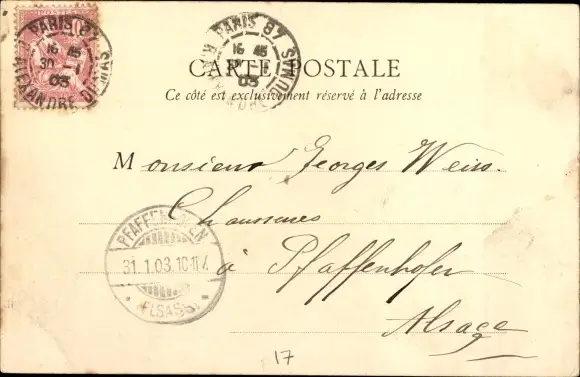 POSTES
10
PARIS 87
16 45
30 - 1
03
R. ALEXANDRE DUMAS
PARIS 87
16 45
30 - 1
03
DUMAS
CARTE POSTALE
Ce côté est exclusivement réservé à l'adresse
Monsieur Georges Weiss.
Chaussures
à Pfaffenhofen
Alsace
PFAFFENHOFEN
31.1.03.10-11 V.
(ELSASS)
17